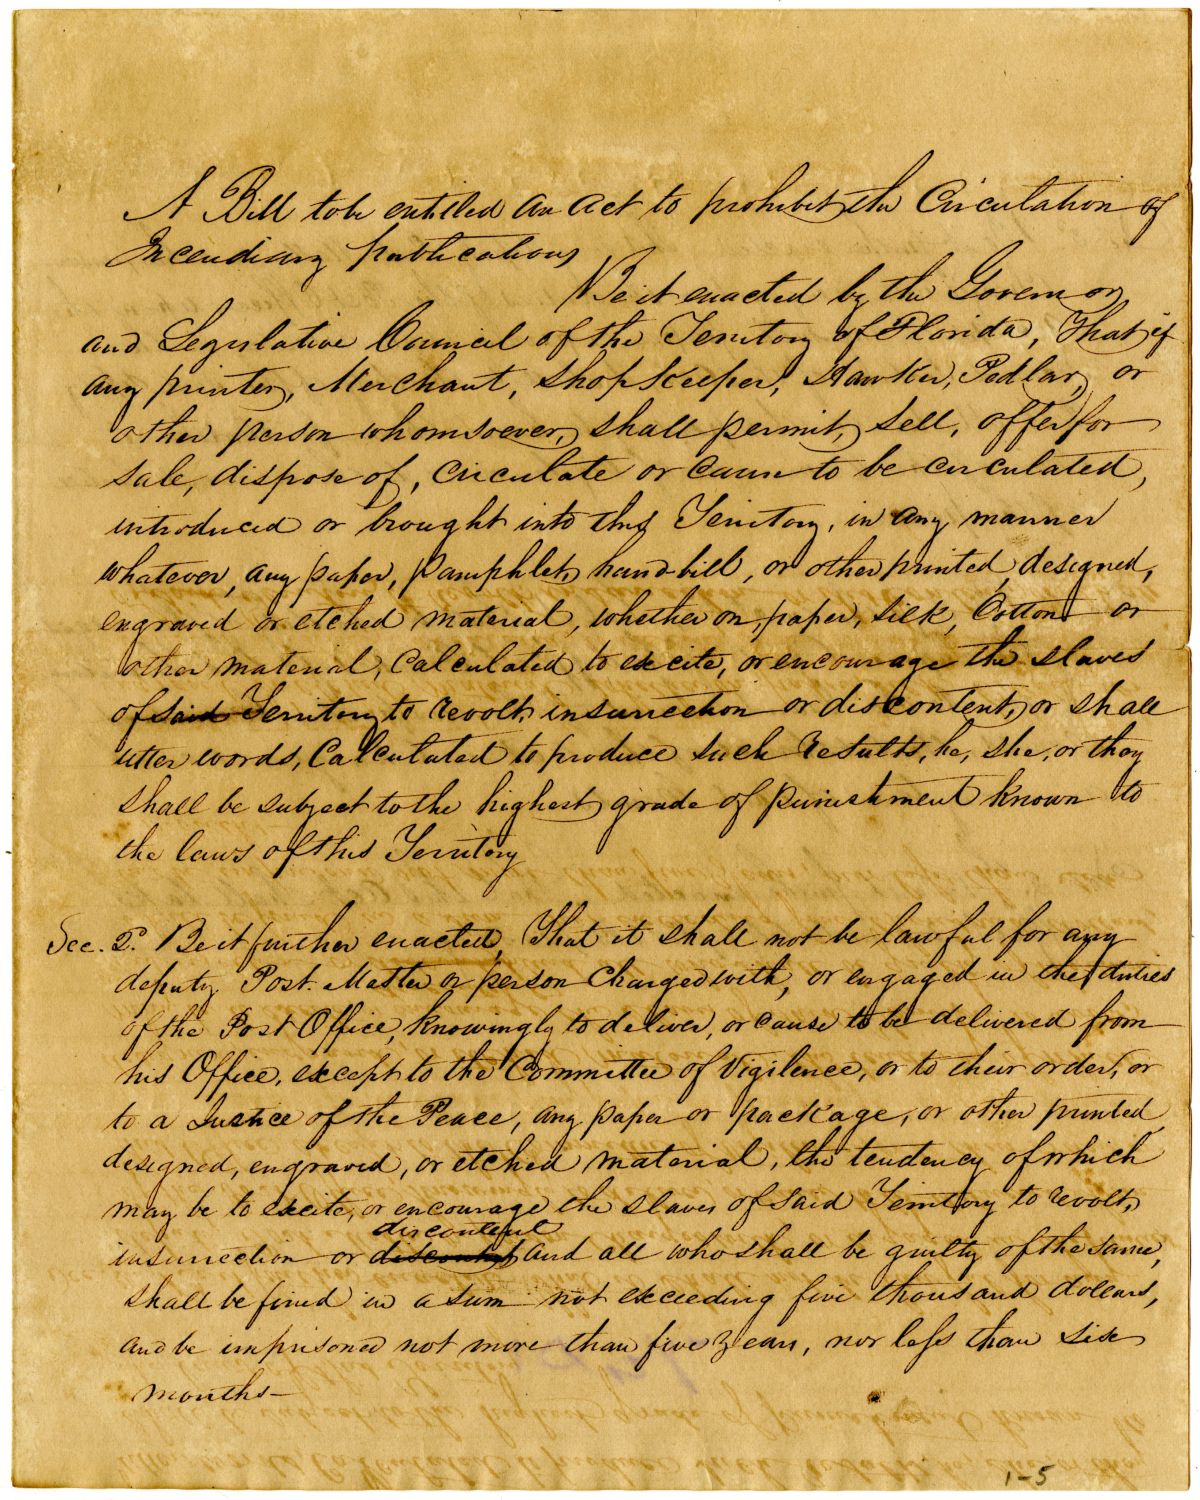 A Bill to be entitled An Act to prohibit the Circulation of
Incendiary publications
Be it enacted by the Governor
and Legislative Council of the Territory of Florida, That if
any printer, Merchant, Shop Keeper, Hawker, Pedlar, or
other person whomsoever, shall permit, sell, offer for
sale, dispose of, circulate or cause to be circulated,
introduced or brought into this Territory, in any manner
whatever, any paper, pamphlet, hand-bill, or other printed, designed,
engraved or etched material, whether on, paper, silk, Cotton or
other material, calculated to excite, or encourage the slaves
of said Territory to revolt, insurrection or discontent, or shall
utter words, Calculated to produce such results, he, she, or they
shall be subject to the highest grade of punishment known to
the laws of this Territory
Sec. 2. Be it further enacted, That it shall not be lawful for any
deputy Post. Master or person Charged with, or engaged in the duties
of the Post Office, knowingly to deliver, or cause to be delivered from
his Office, except to the Committee of Vigilence, or to their order, or
to a Justice of the Peace, any paper or package, or other printed,
designed, engraved, or etched material, the tendency of which
may be to excite, or encourage the slaves of said Territory to revolt,
discontent
insurrection or and all who shall be guilty of the same,
shall be fined in a sum not exceeding five thousand dollars,
and be imprisoned not more than five years, nor less than six
months-
1-5